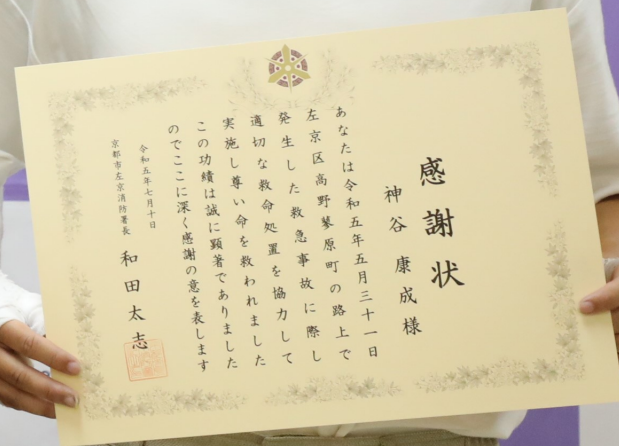 感謝状
神谷康成様
あなたは令和五年五月三十一日
左京区高野蓼原町の路上で
発生した救急事故に際し
適切な救命処置を協力して
実施し尊い命を救われました
この功績は誠に顕著でありました
のでここに深く感謝の意を表します
令和五年七月十日
京都市左京消防署長
和田太志